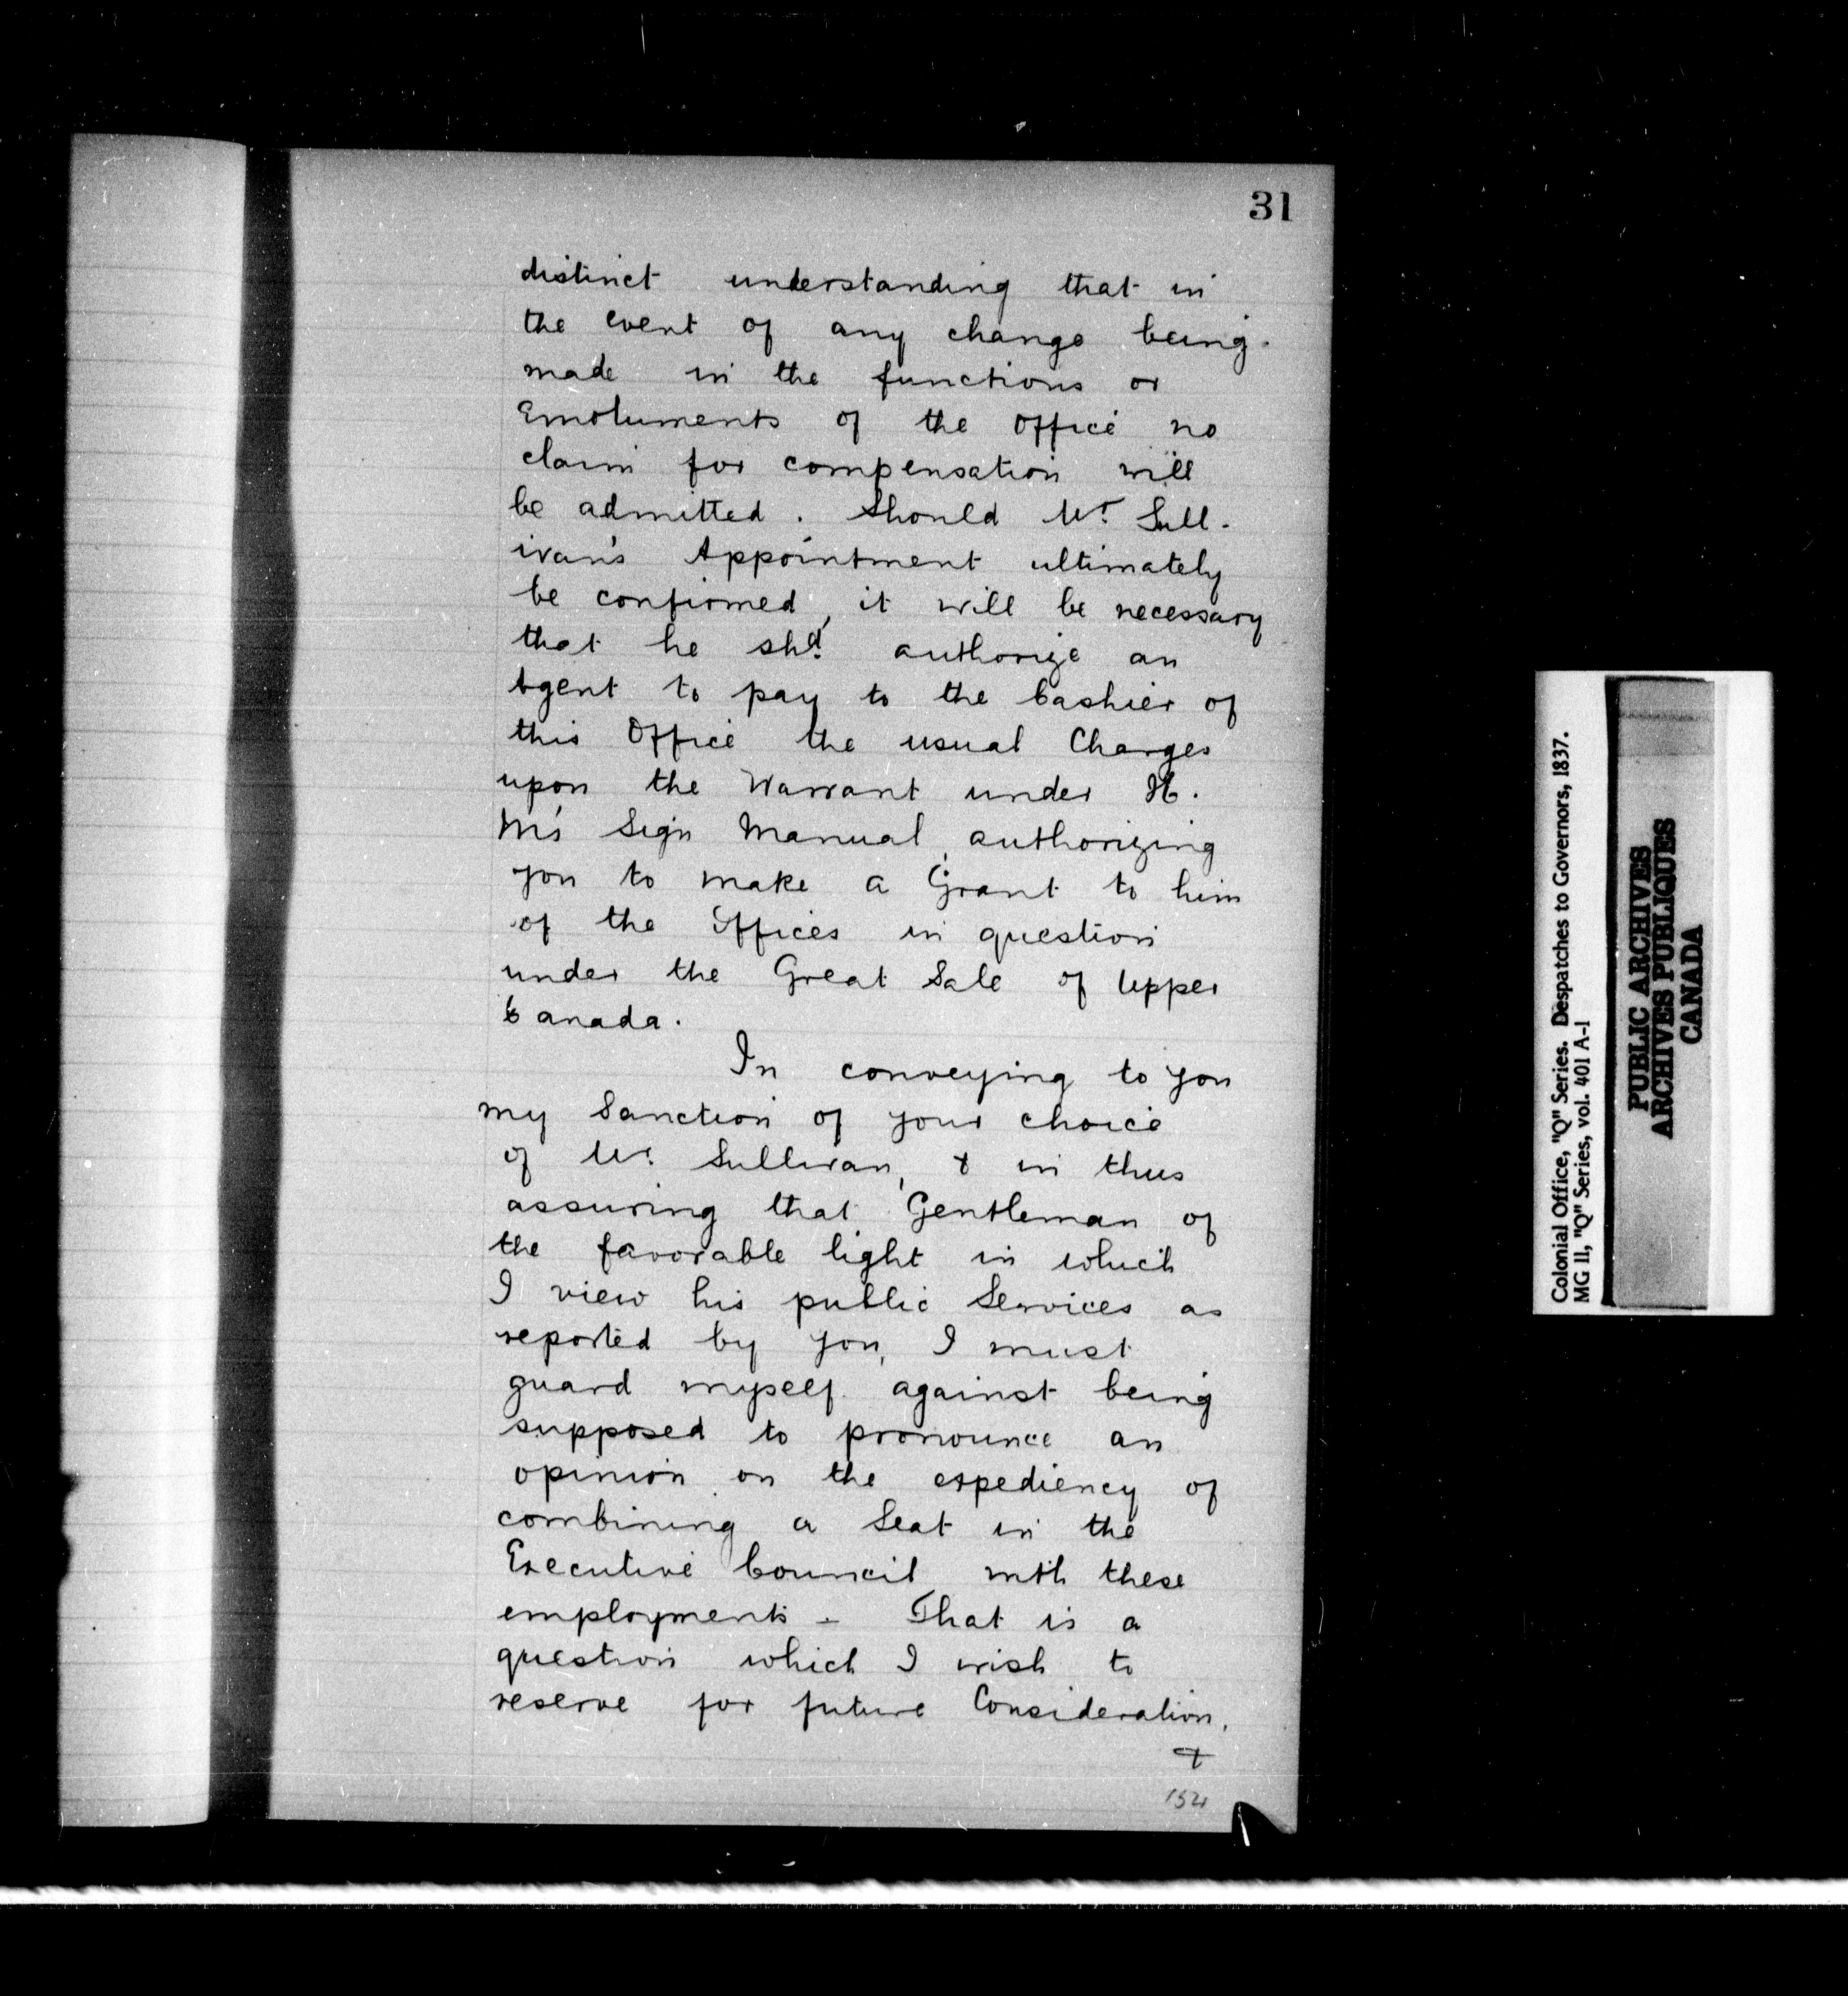 31
distinct understanding that in
the event of any change being
made in the functions or
Emoluments of the Office no
claim for compensation will
be admitted. Should Mr. Sull-
ivan's Appointment ultimately
be confirmed, it will be necessary
that he shd. authorize an
Agent to pay to the Cashier of
this Office the usual Charges
upon the Warrant under H.
M's Sign Manual, authorizing
you to make a Grant to him
of the Offices in question
under the Great Sale of Upper
Canada.
In conveying to you
my Sanction of your choice
of Mr. Sullivan, & in thus
assuring that Gentleman of
the favorable light in which
I view his public Services as
reported by you, I must
guard myself against being
supposed to pronounce an
opinion on the expediency of
combining a Seat in the
Executive Council with these
employments - That is a
question which I wish to
reserve for future Consideration,
&
Colonial Office, "Q" Series. Despatches to Governors, 1837.
MG 11, "Q" Series, vol. 401 A-1
PUBLIC ARCHIVES
ARCHIVES PUBLIQUES
CANADA